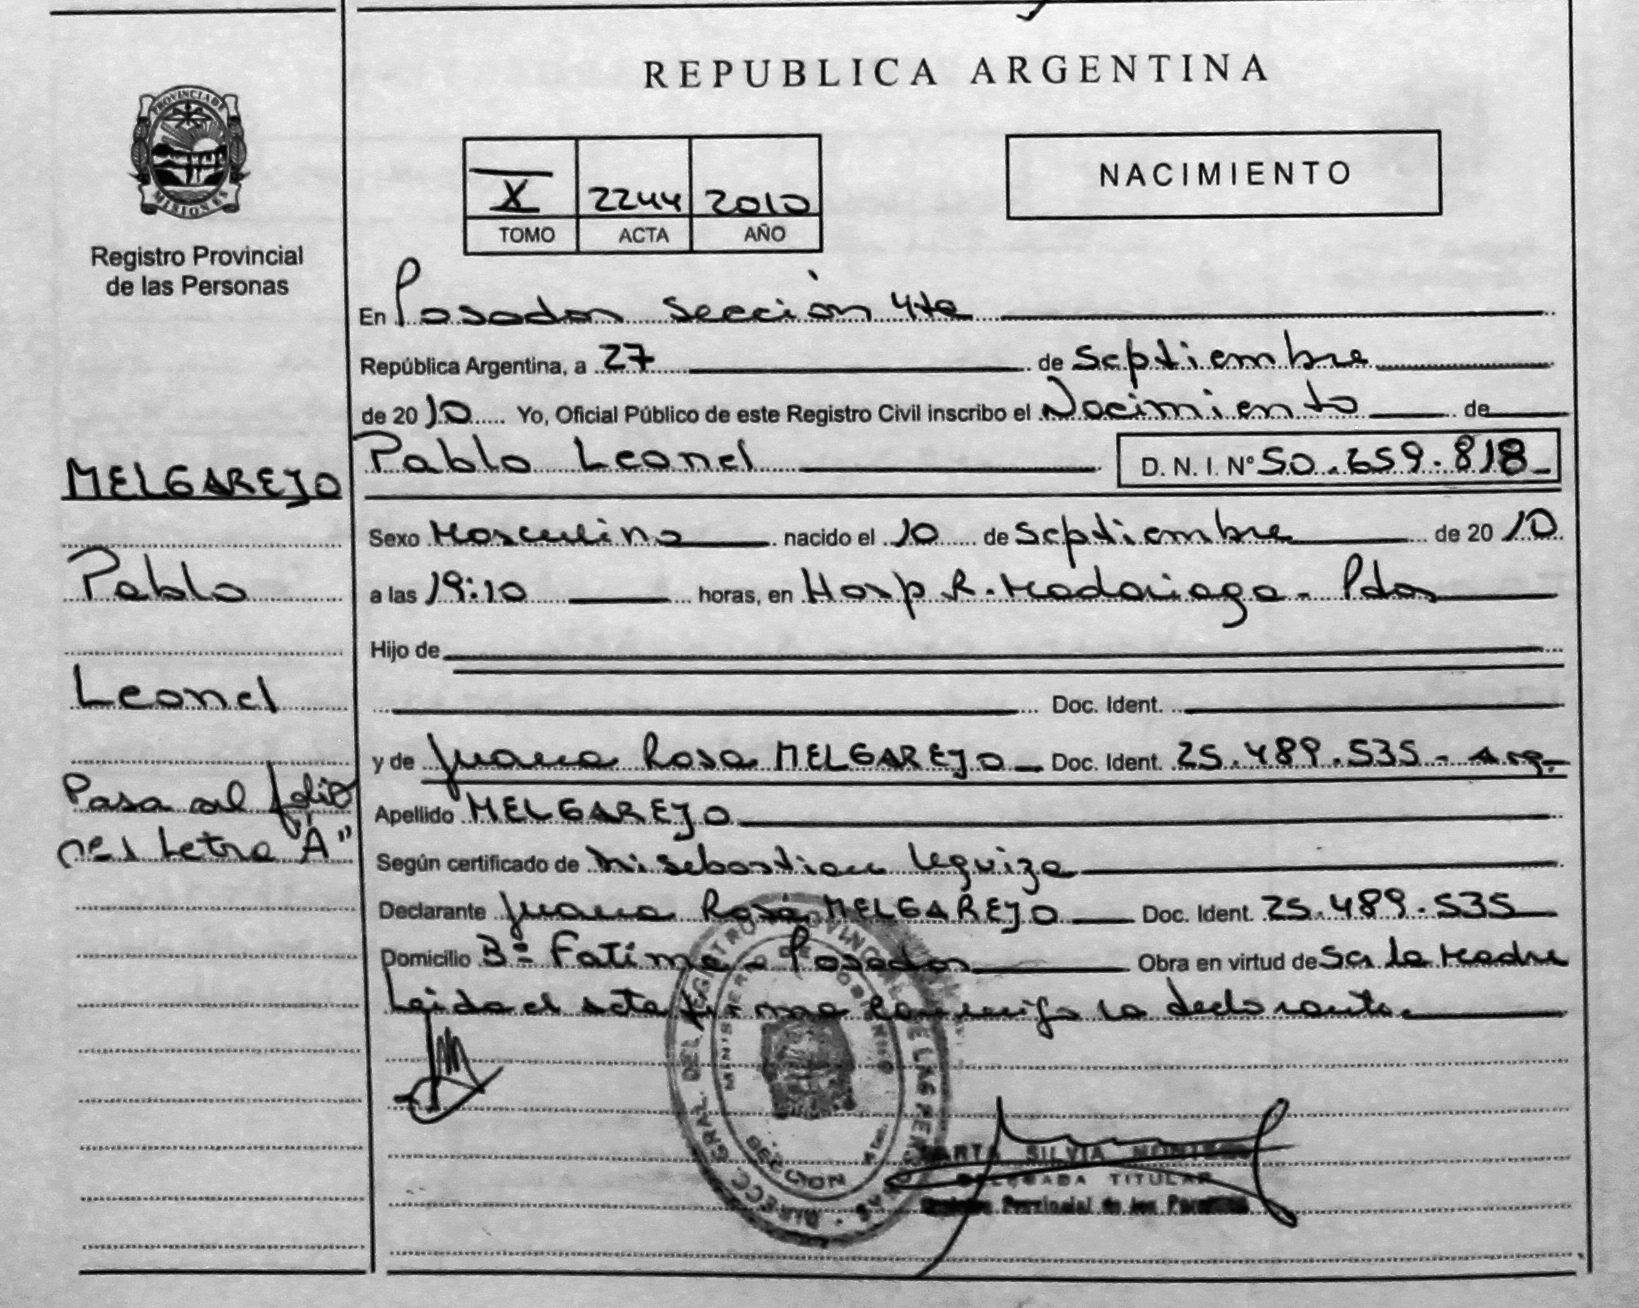 REPUBLICA ARGENTINA
PROVINCIA DE
MISIONES
Registro Provincial
de las Personas
X 2244 2010
TOMO ACTA AÑO
NACIMIENTO
En Posadas Sección 4ta
República Argentina, a 27 de Septiembre
de 2010 Yo, Oficial Público de este Registro Civil inscribo el Nacimiento de
Pablo Leonel D. N. I. Nº 50.659.818
MELGAREJO
Pablo
Leonel
Pasa al folio
Letra "A"
Sexo Masculino nacido el 10 de Septiembre de 2010
a las 19:10 horas, en Hosp R. Madariaga - Pdas
Hijo de
Doc. Ident.
y de Juana Rosa MELGAREJO Doc. Ident. 25.489.535 - Arg.
Apellido MELGAREJO
Según certificado de Sebastian
Declarante Juana Rosa MELGAREJO Doc. Ident. 25.489.535
Domicilio Bº Fatima - Posadas Obra en virtud de Ser la Madre
Leida el acta firma conmigo la declarante
DIRECC. GRAL. DEL REGISTRO PROVINCIAL DE LAS PERSONAS
MINISTERIO DE GOBIERNO
SECCION 4ta.
SILVIA
DELEGADA TITULAR
Registro Provincial de las Personas